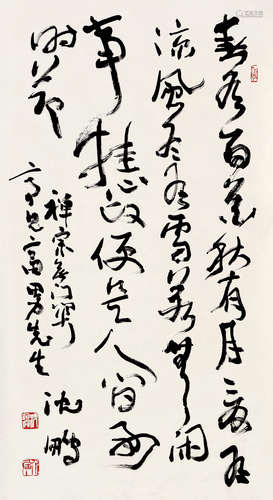 春有百花秋有月夏有
凉風冬有雪若無闲
事挂心頭便是人间好
时节
禅宗無门関
高見富男先生
沈鹏